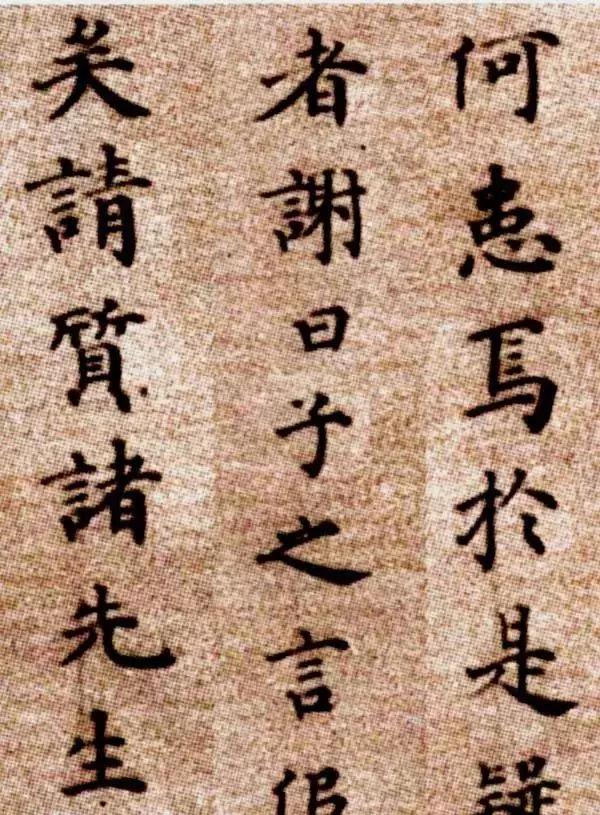 何患焉於是疑
者謝曰子之言
矣請質諸先生